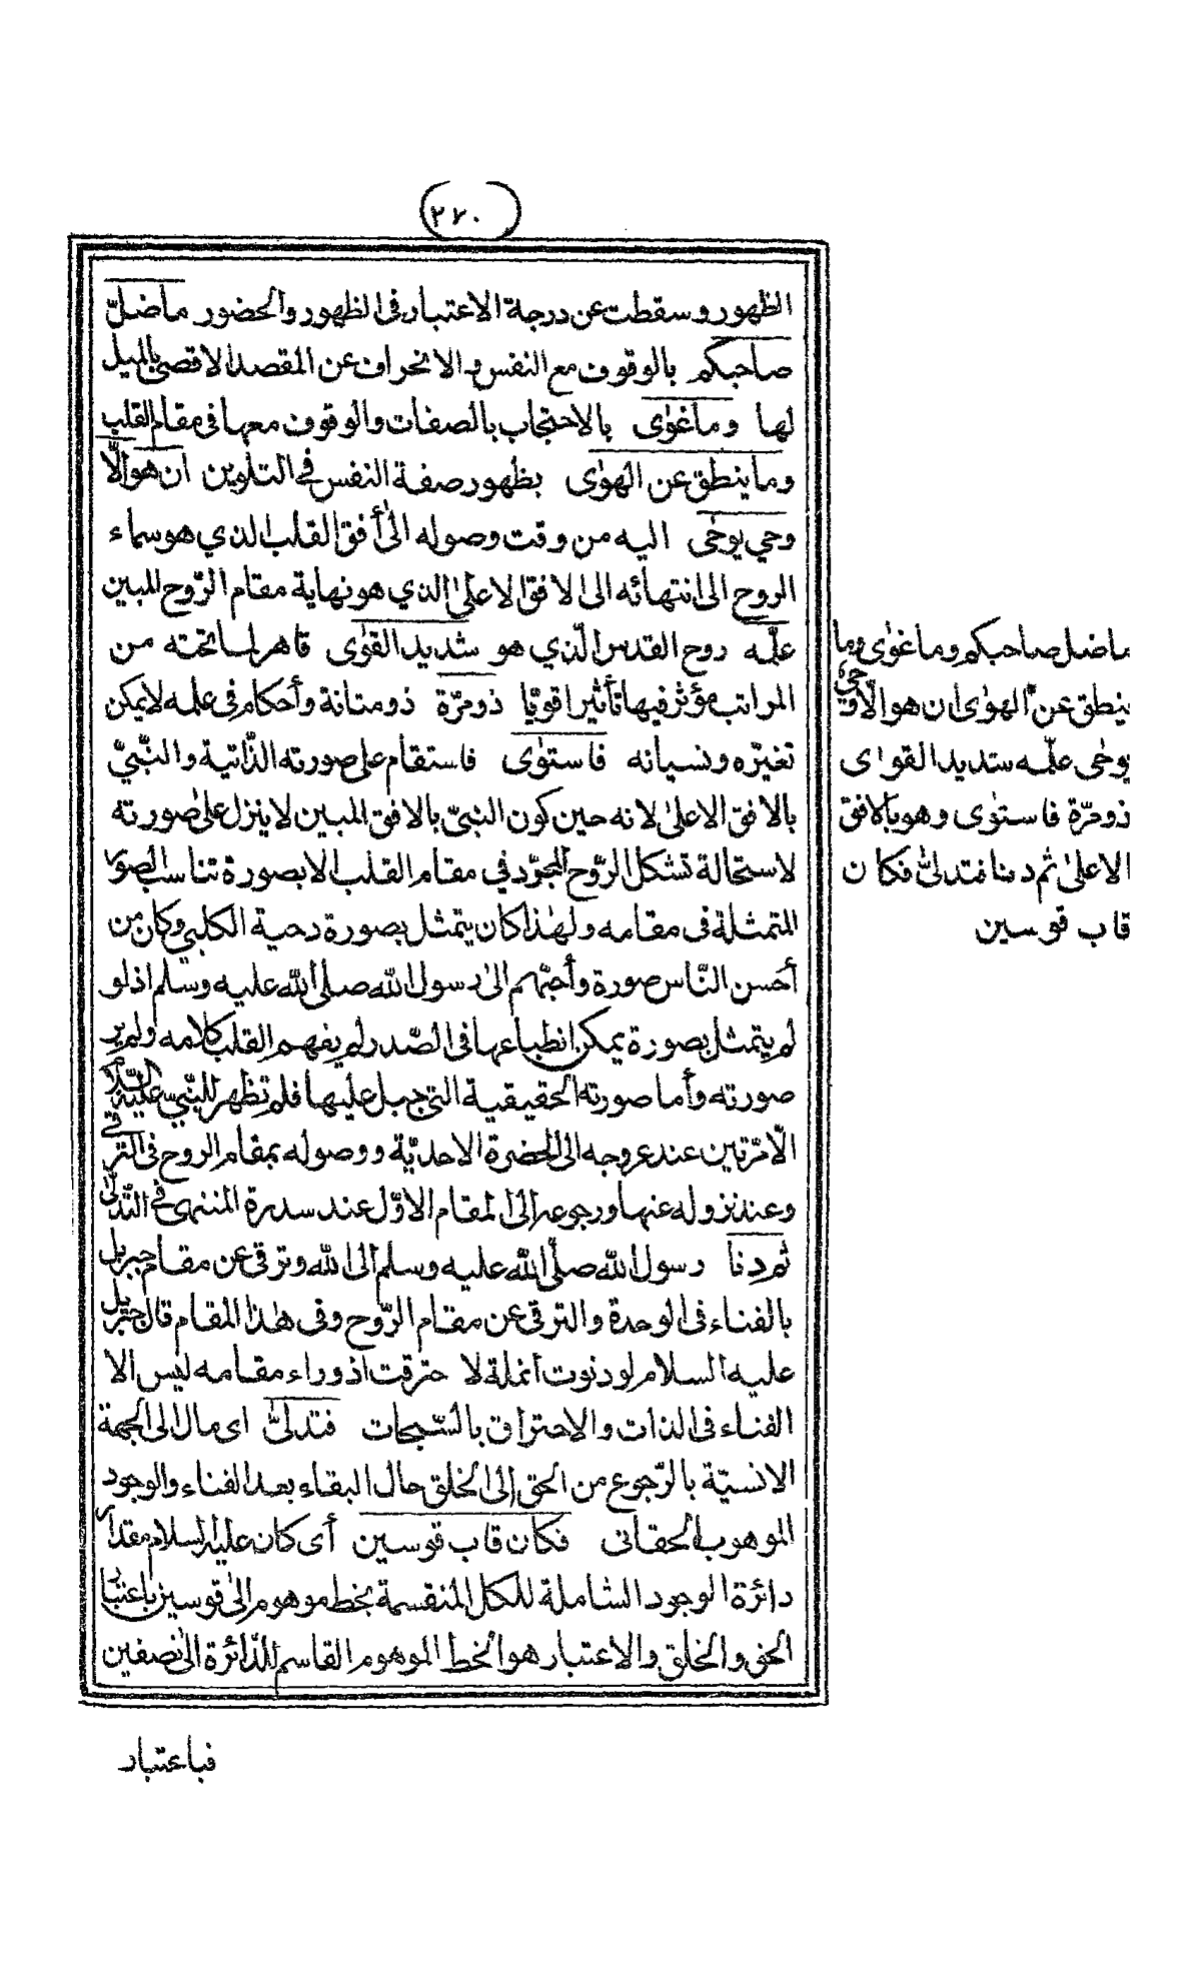 (٢٧٠)
الظهور وسقطت عن درجة الاعتبار فى الظهور والحضور ماضلّ
صاحبكم بالوقوف مع النفس والانحراف عن المقصد الاقصى بالميل
لها وماغوٰى بالاحتجاب بالصفات والوقوف معها فى مقام القلب
وما ينطق عن الهوٰى بظهور صفة النفس فى التلوين ان هو الّا
وحي يوحٰى اليه من وقت وصوله الىٰ أفق القلب الذي هو سماء
الروح الى انتهائه الى الافق الاعلىٰ الذي هو نهاية مقام الرّوح المبين
علّمه روح القدس الّذي هو شديد القوٰى قاهر لما تحته من
المراتب مؤثر فيها تأثيرا قويّا ذو مرّة ذو متانة وأحكام فى علمه لا يمكن
تغيّره ونسيانه فاستوٰى فاستقام على صورته الذّاتية والنّبّيّ
بالافق الاعلىٰ لانه حين كون النبىّ بالافق المبين لا ينزل علىٰ صورته
لاستحالة تشكل الرّوح المجرّد في مقام القلب الا بصورة تناسب الصور
المتمثلة فى مقامه ولهٰذا كان يتمثل بصورة دحية الكلبي وكان من
أحسن النّاس صورة وأحبّهم الىٰ رسول الله صلى الله عليه وسلم اذ لو
لم يتمثل بصورة يمكن انطباعها فى الصّدر لم يفهم القلب كلامه ولم ير
صورته وأما صورته الحقيقية التى جبل عليها فلم تظهر للنّبيّ عليه السّلام
الّا مرّتين عند عروجه الى الحضرة الاحديّة ووصوله بمقام الروح فى الترقى
وعند نزوله عنها ورجوعه الى المقام الاوّل عند سدرة المنتهى فى التّدلّى
ثم دنا رسول الله صلّى الله عليه وسلم الى الله وترقى عن مقام جبريل
بالفناء فى الوحدة والترقى عن مقام الرّوح وفى هٰذا المقام قال جبريل
عليه السلام لو دنوت انملة لا حترقت اذ وراء مقامه ليس الا
الفناء فى الذات والاحتراق بالسّبحات فتدلىّٰ اى مال الى الجهة
الانسيّة بالرّجوع من الحق إلى الخلق حال البقاء بعد الفناء والوجود
الموهوب الحقانى فكان قاب قوسين أى كان عليه السلام مقدار
دائرة الوجود الشاملة للكل المنقسمة بخط موهوم الىٰ قوسين باعتبار
الحق والخلق والاعتبار هو الخط الموهوم القاسم للدّائرة الىٰ نصفين
ماضل صاحبكم وماغوٰى وما
ينطق عن الهوٰى ان هو الّا وحي
يوحٰى علّمه شديد القواى
ذو مرّة فاستوٰى وهو بالافق
الاعلىٰ ثم دنا فتدلىّٰ فكان
قاب قوسين
فباعتبار